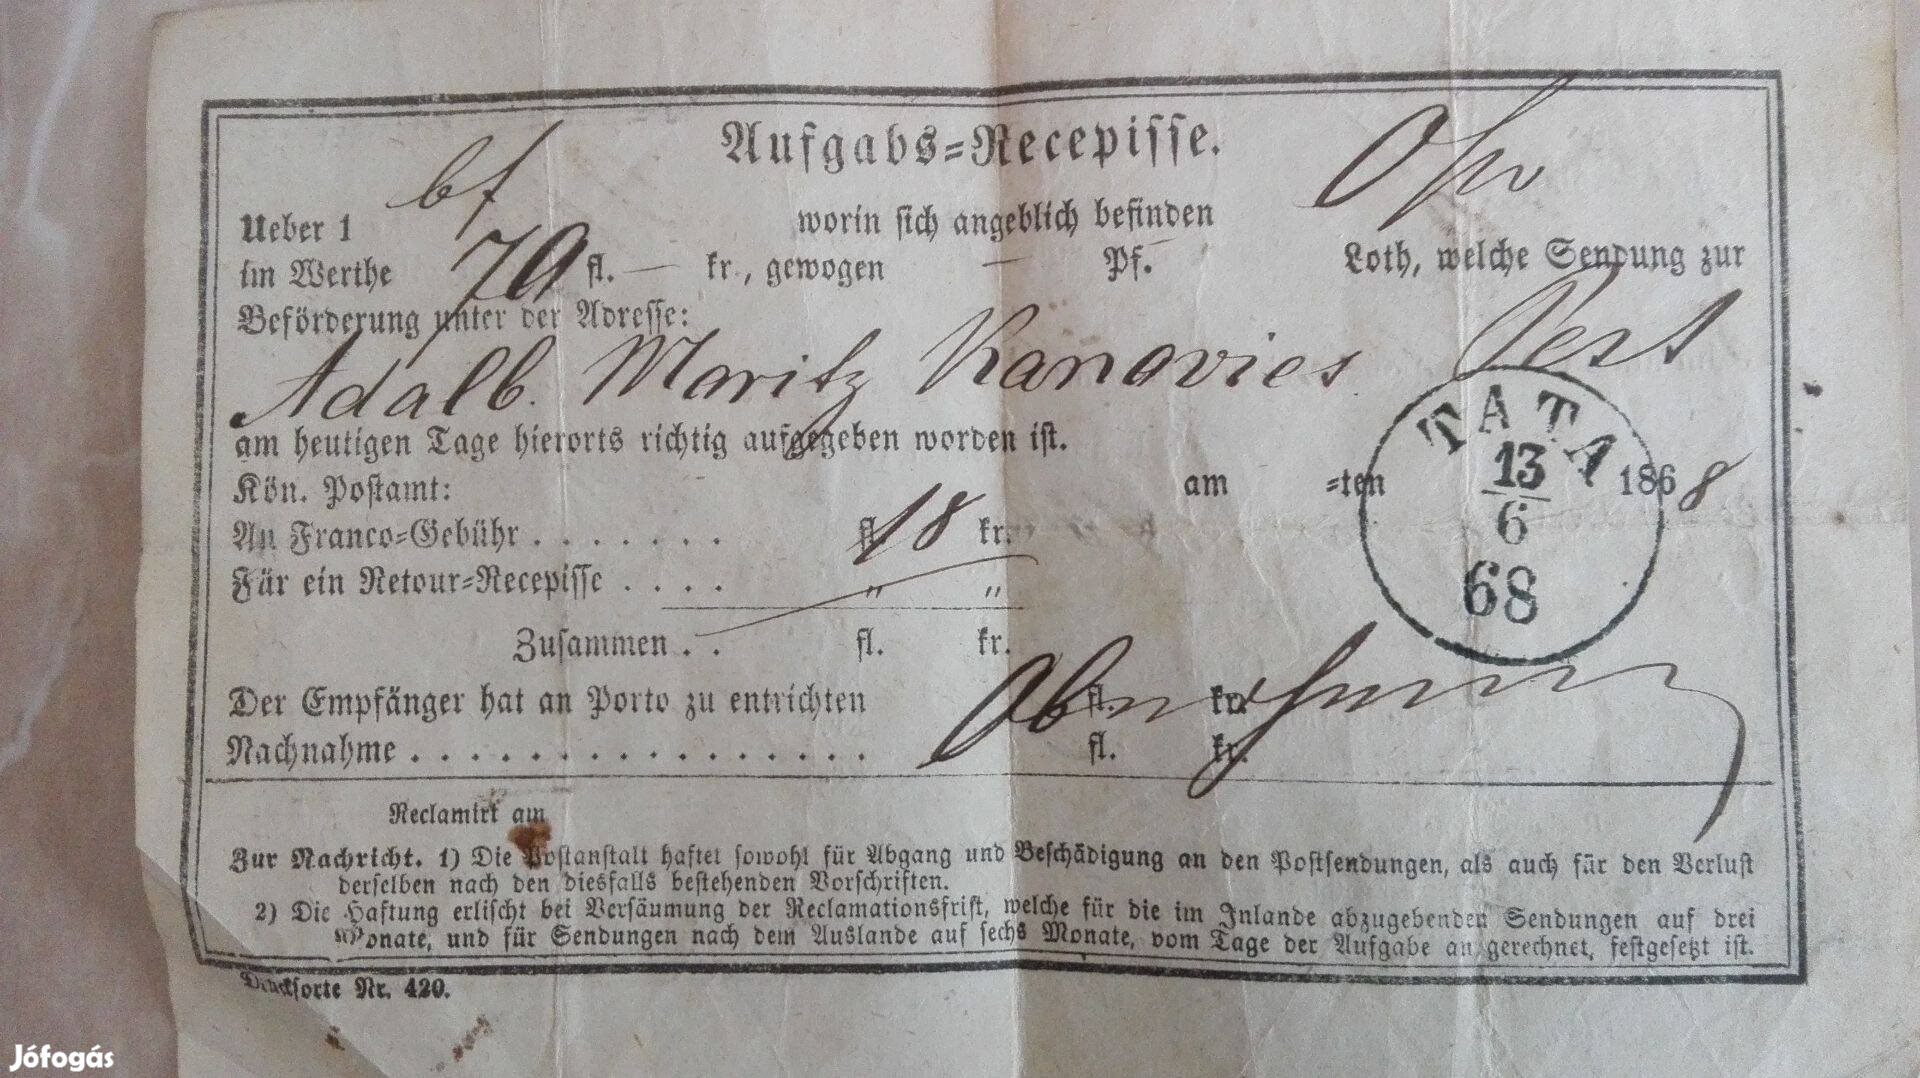 Aufgabs-Recepisse.
Ueber 1 bf worin sich angeblich befinden
im Werthe 70 fl. — kr., gewogen — Pf. Loth, welche Sendung zur
Beförderung unter der Adresse:
Adalb. Moritz Kanovics Pest
am heutigen Tage hierorts richtig aufgegeben worden ist.
Kön. Postamt: am =ten 1868
TATA
13
6
68
An Franco-Gebühr . . . . . . . fl. 18 kr.
Für ein Retour-Recepisse . . . . " "
Zusammen . . fl. kr.
Der Empfänger hat an Porto zu entrichten fl. kr.
Nachnahme . . . . . . . . . . . . . . . . fl. kr.
Reclamirt am
Zur Nachricht. 1) Die Postanstalt haftet sowohl für Abgang und Beschädigung an den Postsendungen, als auch für den Verlust
derselben nach den diesfalls bestehenden Vorschriften.
2) Die Haftung erlischt bei Versäumung der Reclamationsfrist, welche für die im Inlande abzugebenden Sendungen auf drei
Monate, und für Sendungen nach dem Auslande auf sechs Monate, vom Tage der Aufgabe an gerechnet, festgesetzt ist.
Drucksorte Nr. 420.
Jófogás